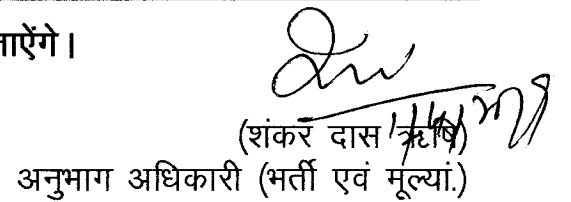 जाऐंगे।
(शंकर दास ऋषि)
अनुभाग अधिकारी (भर्ती एवं मूल्यां.)